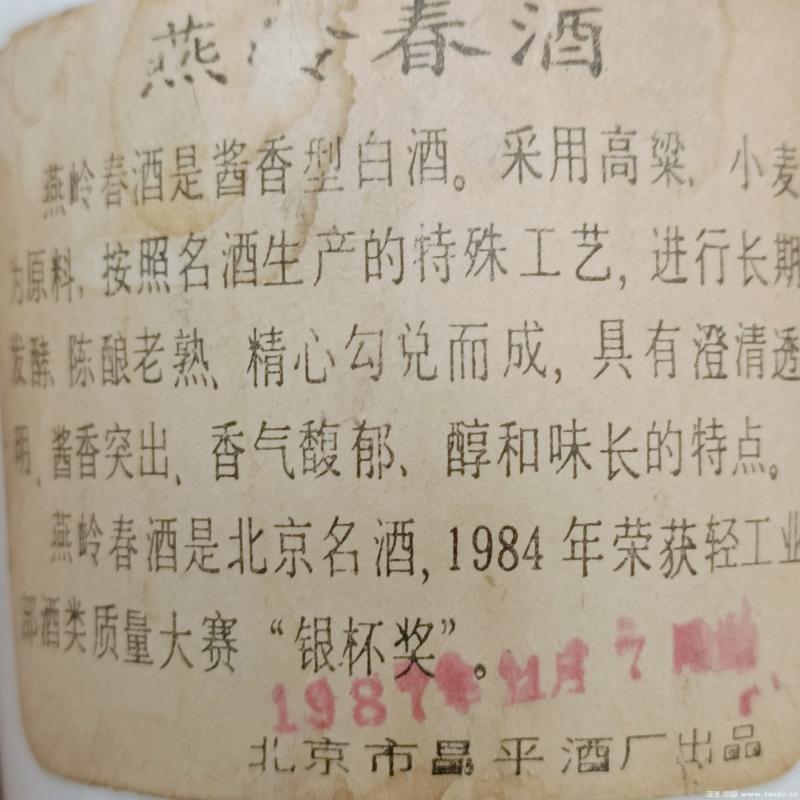 燕岭春酒
燕岭春酒是酱香型白酒。采用高粱、小麦
为原料,按照名酒生产的特殊工艺,进行长期
发酵、陈酿老熟、精心勾兑而成,具有澄清透
明、酱香突出、香气馥郁、醇和味长的特点。
燕岭春酒是北京名酒,1984年荣获轻工业
部酒类质量大赛“银杯奖”。
1987年11月7
北京市昌平酒厂出品